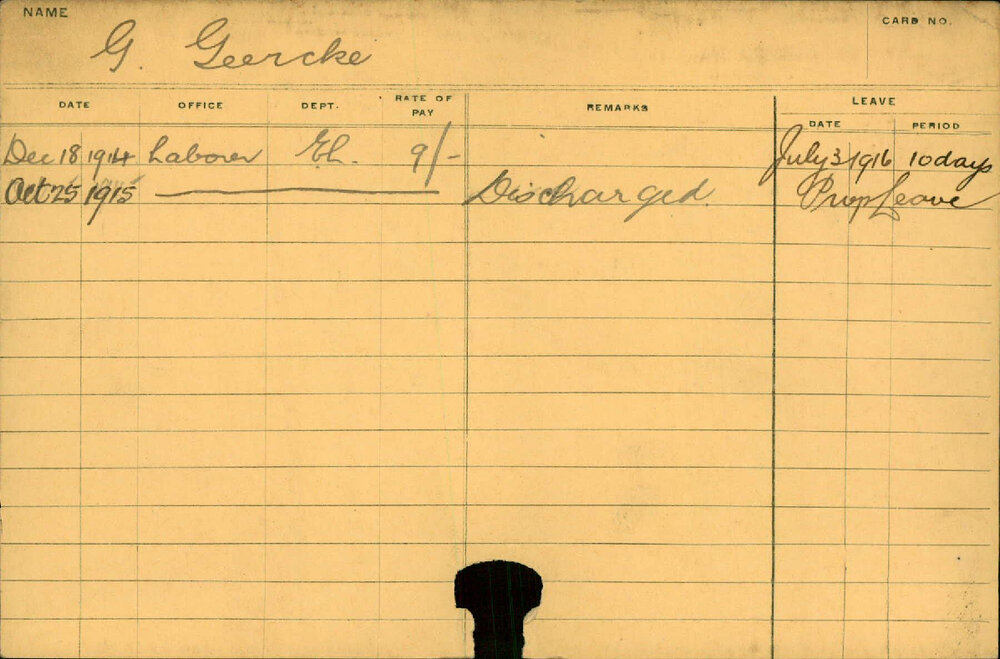 NAME
G. Geercke
CARD NO.
DATE OFFICE DEPT. RATE OF PAY REMARKS LEAVE
DATE PERIOD
Dec 18 1914 Laborer El. 9/- July 31 1916 10 days
Oct 25 1915 Discharged. Prop Leave